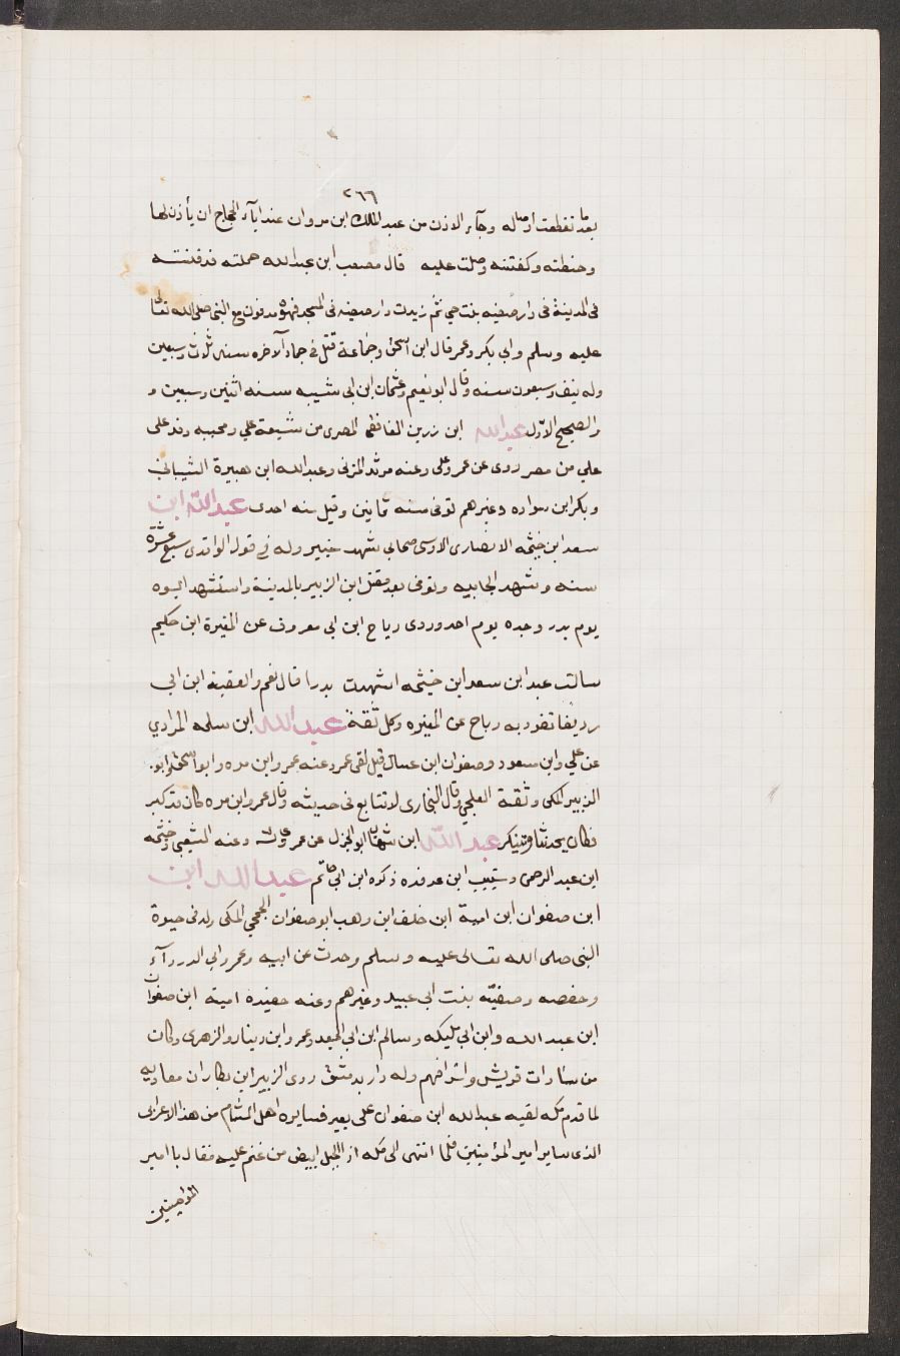 ٢٦٦
بعد ما تقطعت اوصاله وجآء الاذن من عبد الملك ابن مروان عند اباء الحجاج ان يأذن لها
وحنطته وكفنته وصلت عليه قال مصعب ابن عبد الله حملته فدفنته
فى المدينة فى دار صفيه بنت حيي ثم زيدت دار صفيه فى المسجد فهو مدفون مع النبى صلى الله تعالى
عليه وسلم وابي بكر وعمر قال ابن اسحق وجماعة قتل في جماد الآخره سنه ثلاث وسبعين
وله نيف وسبعون سنه وقال ابو نعيم وعثمان ابن ابى شيبه سنه اثنين وسبعين و
والصحيح الاول عبد الله ابن زرين الغافقي المصرى من شيعة علي ومحبيه وفد على
علي من مصر روى عن عمر وعلى وعنه مرثد المزنى وعبد الله ابن هبيرة الشيبانى
وبكر ابن سواده وغيرهم توفى سنه ثمانين وقيل سنه احدى عبد الله ابن
سعد ابن خيثمه الانصارى الاوسى صحابى شهد خيبر وله في قول الواقدى سبع عشرة
سنه وشهد الجابيه وتوفى بعد مقتل ابن الزبير بالمدينة واستشهد ابوه
يوم بدر وجده يوم احد وروى رباح ابن ابى معروف عن المغيرة ابن حكيم
سالت عبد ابن سعد ابن خيثمه اشهدت بدرا قال نعم والعقبة ابن ابى
رديفا تفرد به رباح عن المغيره وكل ثقة عبد الله ابن سلمه المرادي
عن علي وابن مسعود وصفوان ابن عسال قيل لقى عمر وعنه عمرو ابن مره وابو اسحق وابو
الزبير المكى وثقة العجلي وقال البخارى لا يتابع فى حديثه وقال عمرو ابن مره كان قد كبر
فكان يحدثنا وتنكر عبد الله ابن شهاب ابو الجزل عن عمر وعنه الشعبى وخيثمه
ابن عبد الرحمن وشبيب ابن غرقده ذكره ابن ابي حاتم عبد الله ابن
ابن صفوان ابن امية ابن خلف ابن وهب ابو صفوان الجمحي المكى ولد فى حيوة
النبى صلى الله تعالى عليه وسلم وحدث عن ابيه وعمر وابى الدردآء
وحفصه وصفيّه بنت ابى عبيد وغيرهم وعنه حفيده امية ابن صفوان
ابن عبد الله وابن ابى مليكه وسالم ابن ابى الجعد وعمرو ابن دينار والزهرى وكان
من سادات قريش واشرافهم وله دار بدمشق روى الزبير ابن بكار ان معاويه
لما قدم مكه لقيه عبد الله ابن صفوان على بعير فسايره اهل الشام من هذا الاعرابى
الذى ساير امير المؤمنين فلما انتهى الى مكه اذ الجبل ابيض من غنم عليه فقال يا امير
المؤمنين